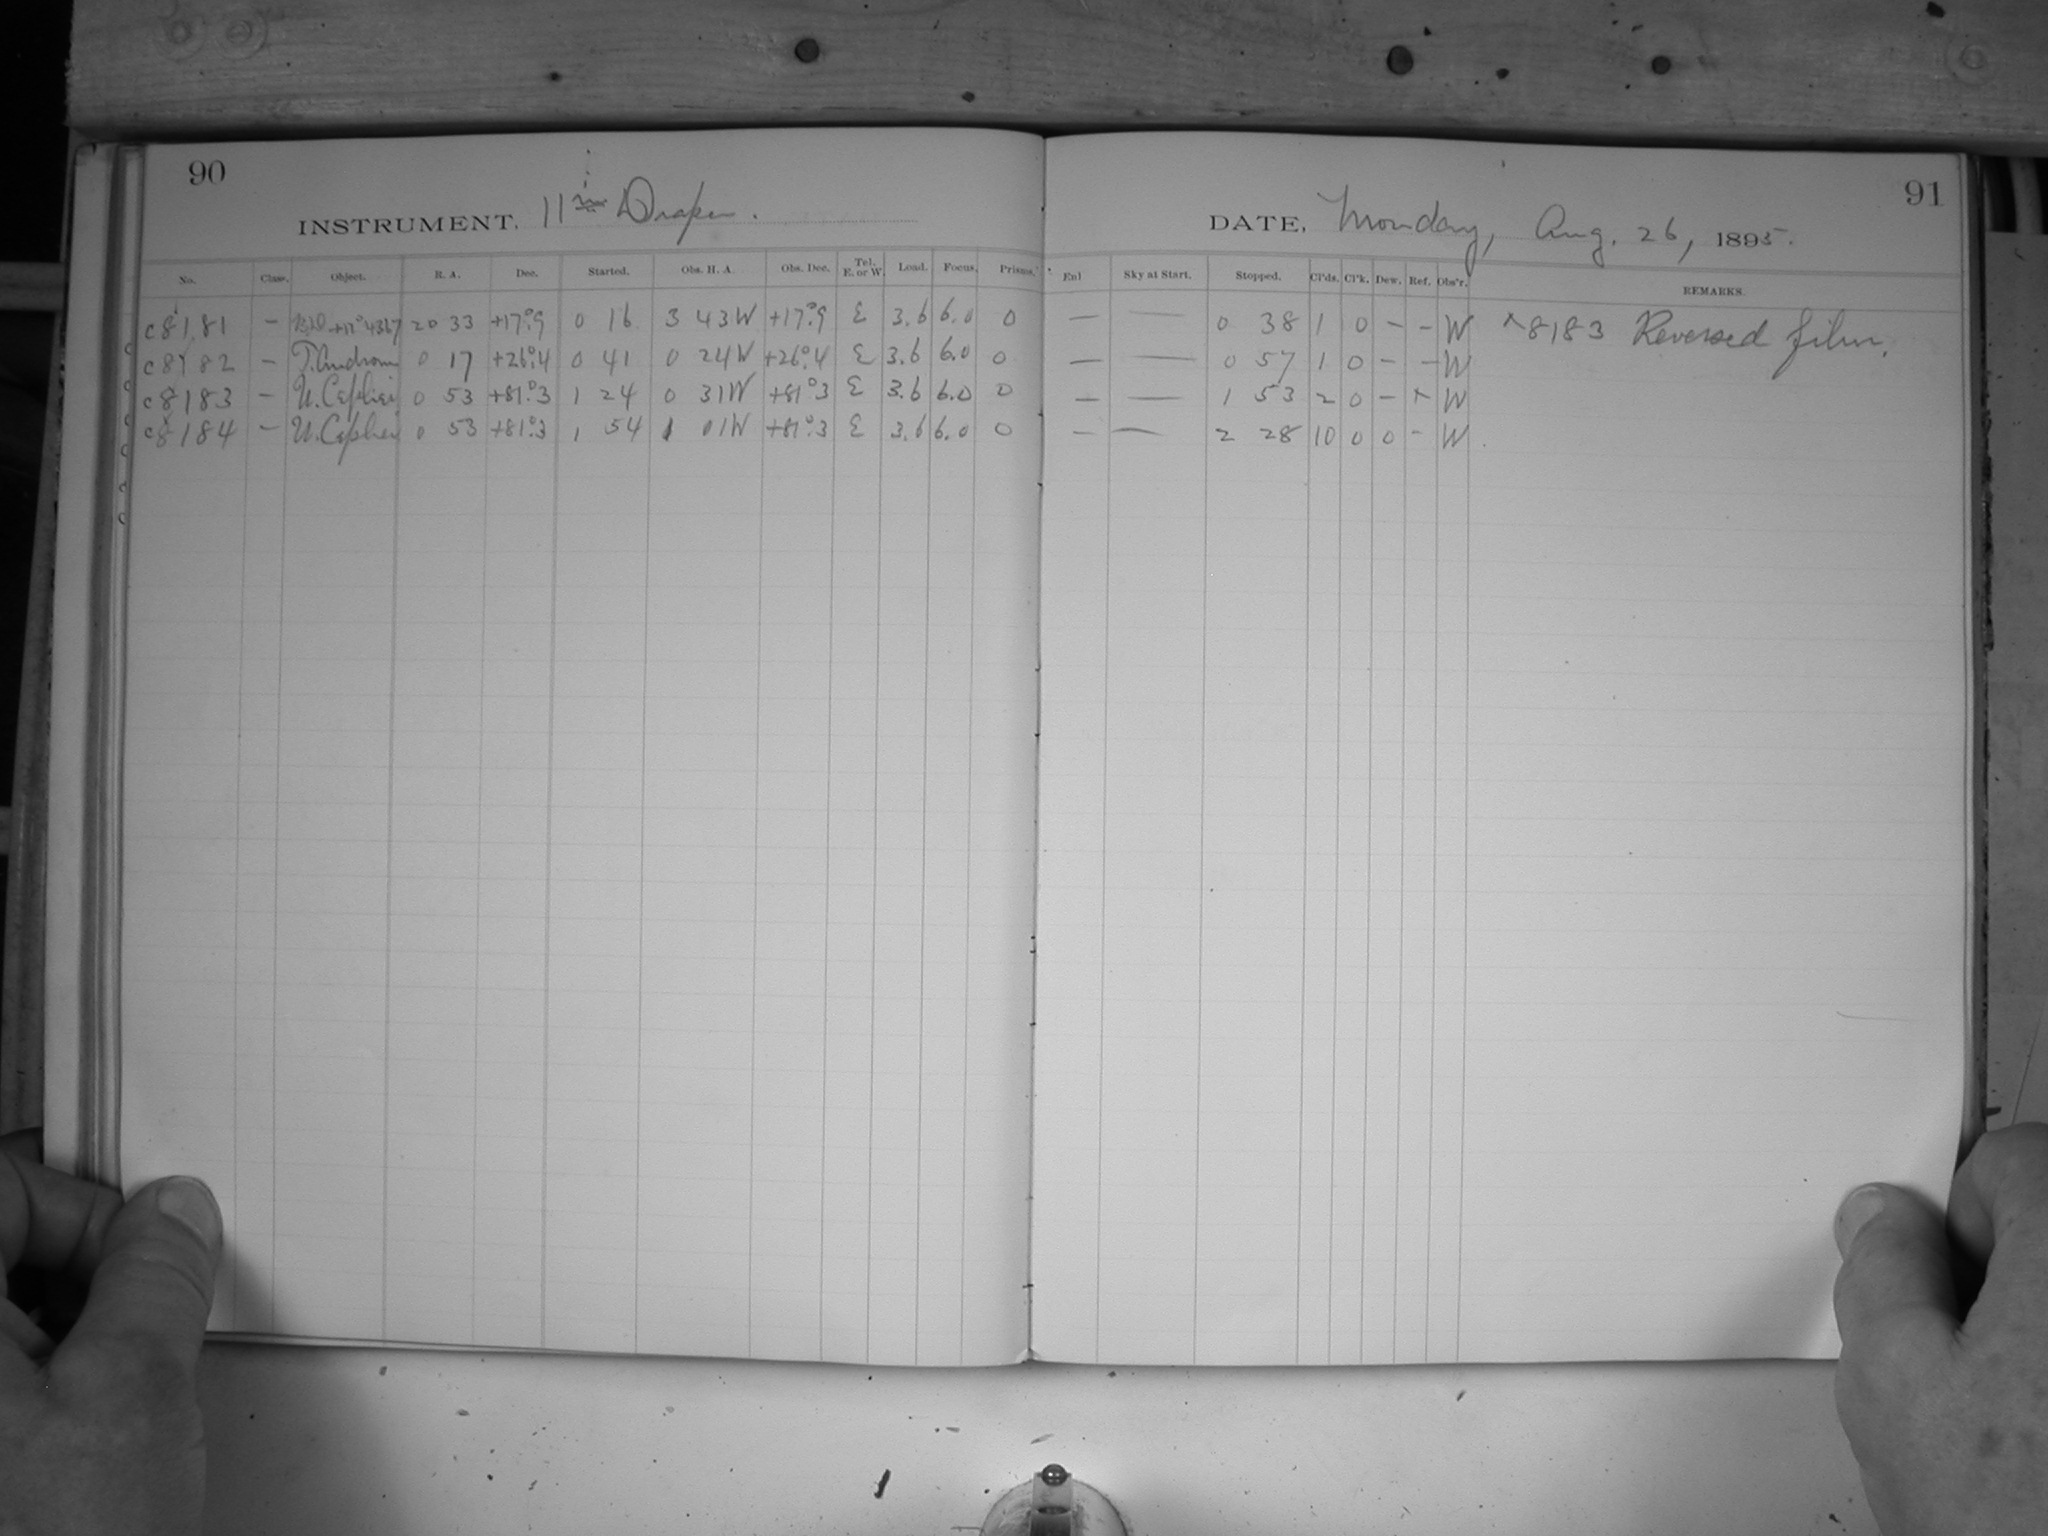 90
INSTRUMENT, 11 in Draper.
No. Class. Object. R. A. Dec. Started. Obs. H. A. Obs. Dec. Tel. E. or W. Load. Focus. Prisms.
c8181 – +17°4367 20 33 +17°.9 0 16 3 43W +17°.9 E 3.6 6.0 0
c8182 – T. Androm 0 17 +26°.4 0 41 0 24W +26°.4 E 3.6 6.0 0
c8183 – U. Cephei 0 53 +81°.3 1 24 0 31W +81°.3 E 3.6 6.0 0
c8184 – U. Cephei 0 53 +81°.3 1 54 1 01W +81°.3 E 3.6 6.0 0
91
DATE, Monday, Aug. 26, 1895.
Enl Sky at Start. Stopped. Cl'ds. Cl'k. Dew. Ref. Obs'r. REMARKS.
– — 0 38 1 0 – – W × 8183 Reversed film.
– — 0 57 1 0 – – W
– — 1 53 2 0 – × W
– — 2 28 10 0 0 – W